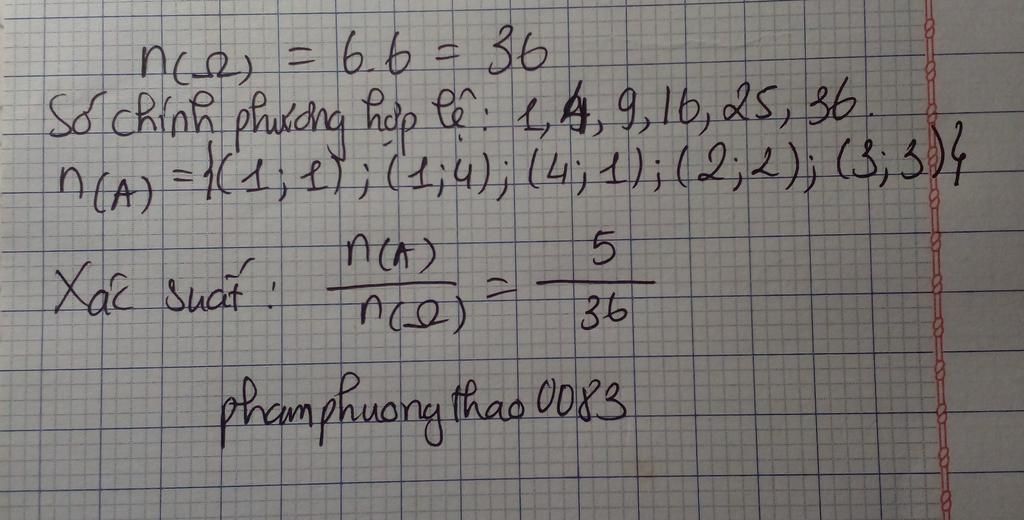 n(Ω) = 6.6 = 36
Số chính phương hợp lệ: 1, 4, 9, 16, 25, 36.
n(A) = {(1; 1); (1; 4); (4; 1); (2; 2); (3; 3)}
Xác suất: n(A)/n(Ω) = 5/36
phamphuongthao0083